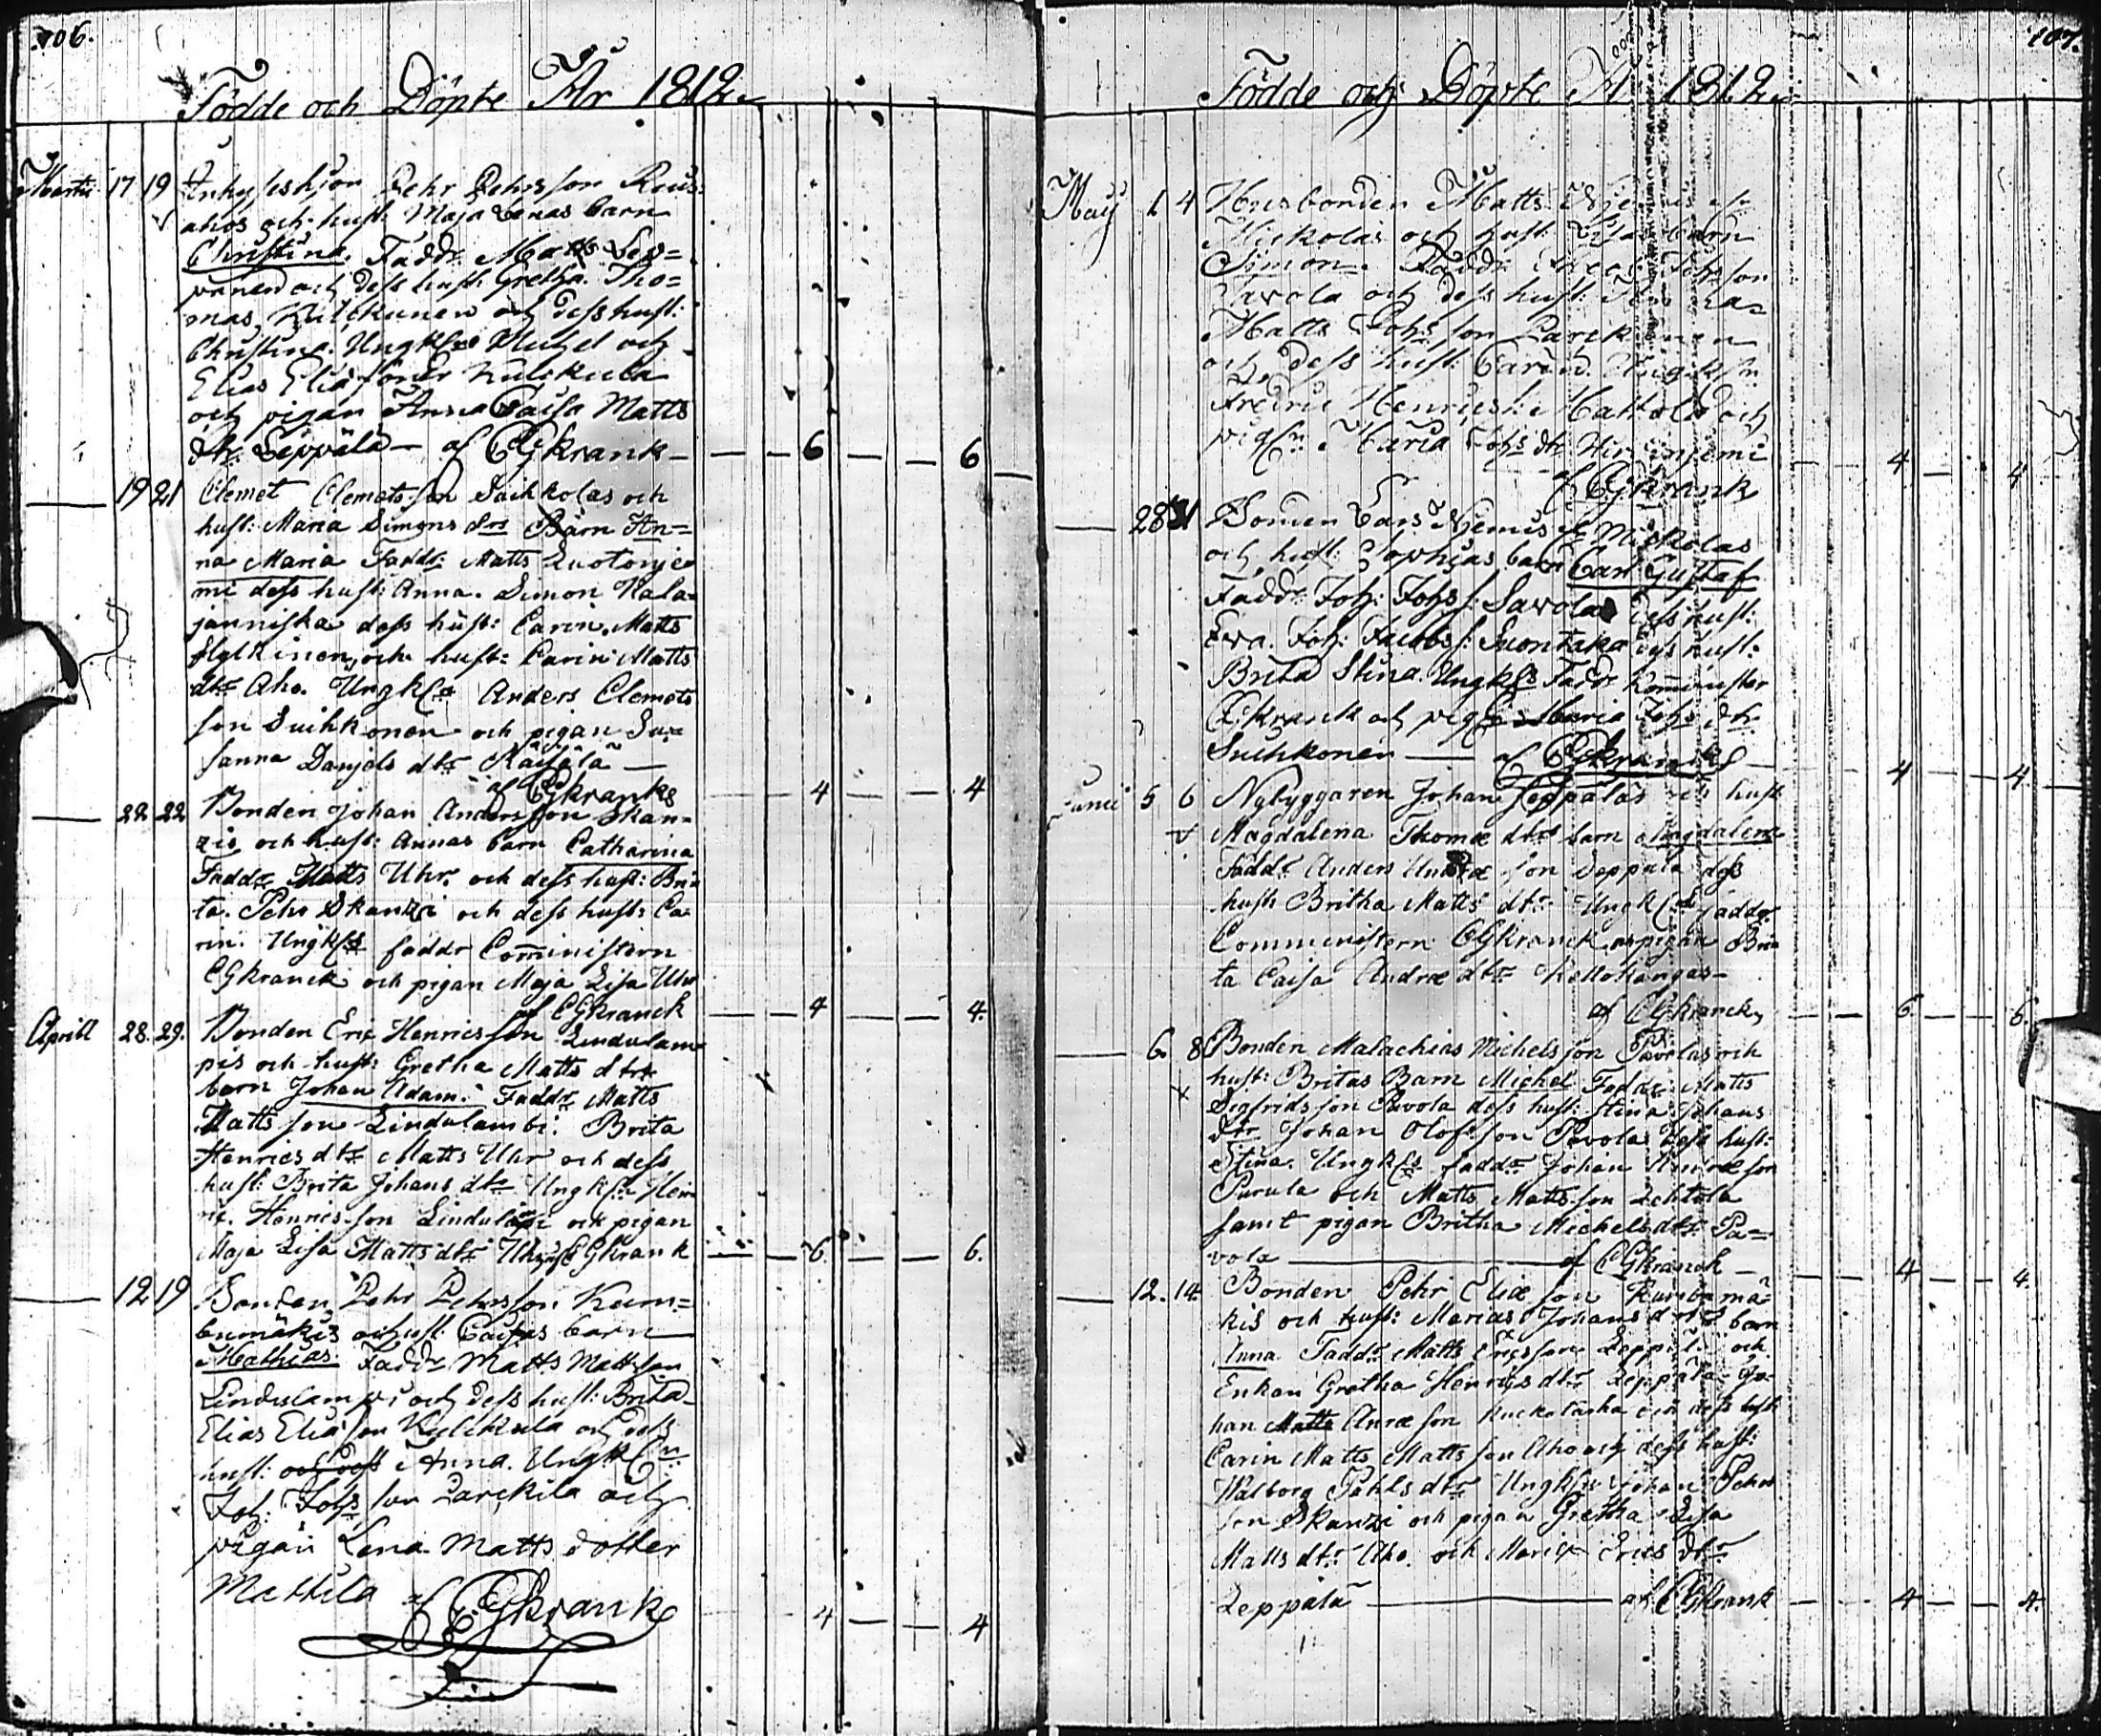 106.
Födde och Döpte År 1812.
Martii 17 19 Inhyseshjon Pehr Pehrsson Reus-
ahos och hust: Maja Lenas barn
Christina. Faddr Matts Lep=
pänen och dess hust: Gretha. Tho=
mas Kulikunen och dess hust:
Christina. Ungk Michel och
Elias Eliæ söner Kulikula
och pigan Anna Caisa Matts
dtr. Leppälä — af CGkrank — 6 — 6
19 21 Clemet Clemetsson Suihkolas och
hust: Maria Simons drs Barn An=
na Maria Faddr: Matts Luotonje
mi dess hust: Anna. Simon Kala-
janniska dess hust: Carin. Matts
Hylkinen och hust: Carin Matts
dtr Aho. Ungk Anders Clemets
son Suihkonen och pigan Su-
sanna Danjels dtr Räisälä —
af CGkrank — 4 — 4
22 22 Bonden Johan Andersson Skan=
zis och hust: Annas barn Catharina
Faddr Matts Uhr. och dess hust: Bri-
ta. Pehr Skanzi och dess hust: Ca-
rin. Ungk faddr Comministern
CGkranck och pigan Maja Lisa Uhr
af CGkranck — 4 — 4.
Aprill 28. 29. Bonden Eric Henricsson Lindulam-
pis och hust: Gretha Matts dtrs
barn Johan Adam. Faddr Matts
Mattsson Lindulambi. Brita
Henrics dtr Matts Uhr och dess
hust: Brita Johans dtr Ungk Hen
ric Henricsson Lindulampi och pigan
Maja Lisa Matts dtr Uhr af CGkrank — 6. — 6.
12 19 Bonden Pehr Pehrsson Kum=
bumäkis och hust: Caisas barn
Mathias. Faddr Matts Mattsson
Lindulampi och dess hust: Brita
Elias Eliæson Kulikula och dess
hust: och dess Anna. Ungk
Joh: Johs son Larckila och
pigan Lena Matts dotter
Mattila af CGkrank 4 — 4
107.
Födde och Döpte År 1812.
May 1 4 Husbonden Matts
Mickolas och hust: Lisas barn
Simon. Faddr Johsson
Savola och dess hust:
Matts Johsson Larck
och dess hust: Carin. Ungk
Fredric Henricss: Mattola och
pig Maria Johs dtr Hirfwinjemi
af CGkrank — 4 — 4
28 31 Bonden Lars Njemis Mickolas
och hust: Sophias barn Carl Gustaf
Faddr Joh: Johs: Savola dess hust:
Eva. Joh: Jacobs: Suontaka dess hust:
Brita Stina. Ungk Faddr Komminister
CGkranck och pig Maria Johs dtr
Suihkonen — af CGkranck — 4 — 4.
Junii 5 6 Nybyggaren Johan Leppälas och hust
Magdalena Thomæ dtrs barn Magdalena
Faddr Anders Andræ son Seppälä dess
hust: Britha Matts dtr Ungk faddr
Comministern CGkranck pigan Bri-
ta Caisa Andræ dtr Kellokangas —
af CGkranck 6 — 6.
6. 8 Bonden Malachias Michelsson Pavolas och
hust: Britas Barn Michel Faddr: Matts
Sigfridsson Pavola dess hust: Stina Johans
dtr Johan Olofsson Pavola dess hust:
Stina. Ungk faddr Johan Andræson
Purula och Matts Mattsson Lehtola
samt pigan Britha Michels dtr Pa=
vola — af CGkranck — 4 — 4.
12. 14. Bonden Pehr Eliæ son Kumbumä-
kis och hust: Marias Johans dtrs barn
Anna Faddr Matts Ericsson Leppälä och
Enkan Gretha Henrics dtr Leppälä Jo-
han Matts Andræ son Huckotaska och dess hust
Carin Matts Mattsson Aho och dess hust:
Walborg Påhls dtr Ungk Johan Pehrs
son Skanzi och pigan Gretha Lisa
Matts dtr Aho. och Maria Erics dtr
Leppälä — af CGkrank — 4 — 4.